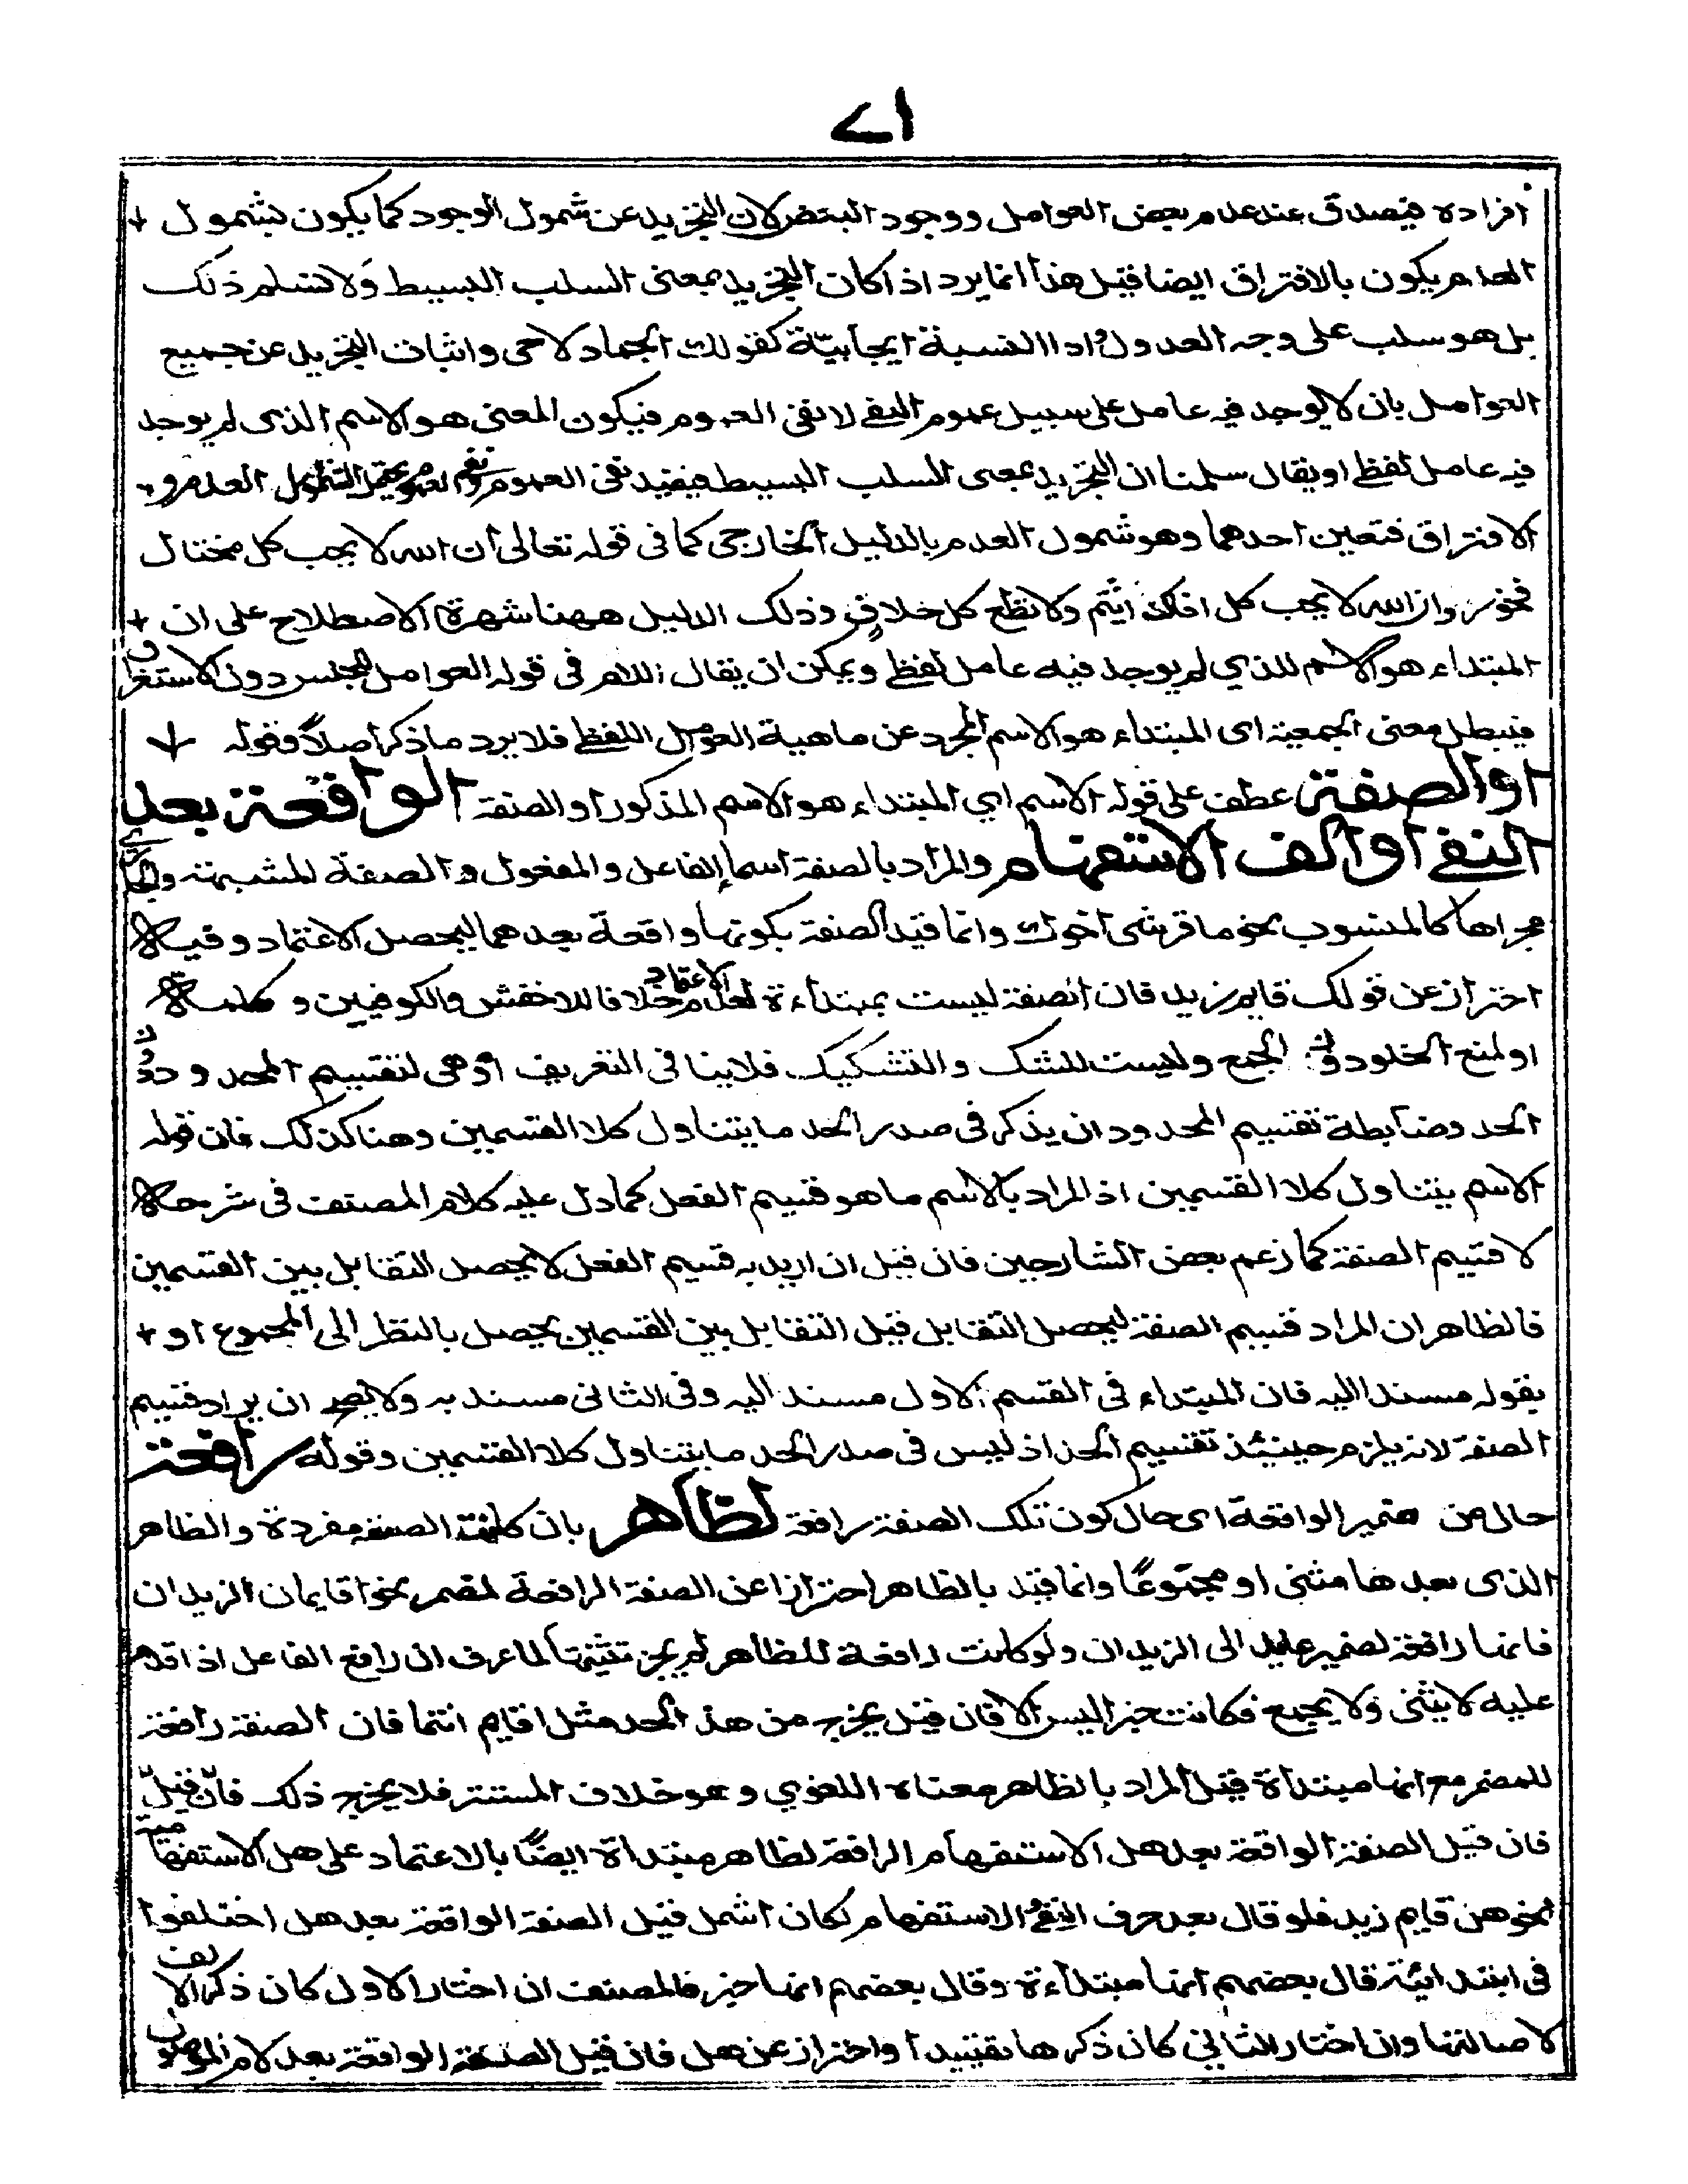 ٧١
افراده فيصدق عند عدم بعض العوامل ووجود البعض لان التجريد عن شمول الوجود كما يكون بشمول
العدم يكون بالافتراق ايضا قيل هذا انما يرد اذا كان التجريد بمعنى السلب البسيط ولا نسلم ذلك
بل هو سلب على وجه العدول واداا لنسبة ايجابيّة كقولك الجماد لا حى واثبات التجريد عن جميع
العوامل بان لا يوجد فيه عامل على سبيل عموم النفى لا نفى العموم فيكون المعنى هو الاسم الذى لم يوجد
فيه عامل لفظي او يقال سلمنا ان التجريد بمعنى السلب البسيط فيفيد نفى العموم ونفى العموم يحتمل الشمول العدم و
الافتراق فتعين احدهما وهو شمول العدم بالدليل الخارجى كما فى قوله تعالى ان الله لا يحب كل مختال
فخور وان الله لا يحب كل افاك اثيم ولا تطع كل حلاف وذلك الدليل ههنا شهرة الاصطلاح على ان
المبتداء هو الاسم للذي لم يوجد فيه عامل لفظي ويمكن ان يقال اللام فى قوله العوامل للجنس دون الاستغراق
فيبطل معنى الجمعية اى المبتداء هو الاسم المجرد عن ماهية العوامل اللفظي فلا يرد ما ذكر اصلاً وقوله
او الصفة عطف على قوله الاسم اي المبتداء هو الاسم المذكور او الصفة الواقعة بعد
النفي او الف الاستفهام والمراد بالصفة اسما الفاعل والمفعول و الصفة المشبهة وما جرى
مجراها كالمنسوب نحو ما قرشى اخوك وانما قيد الصفة بكونها واقعة بعدهما ليحصل الاعتماد وفيه
احتراز عن قولك قايم زيد فان الصفة ليست بمبتداءة لعدم الاعتماد خلافا للاخفش والكوفيين و كلمة
او لمنع الخلو دون الجمع وليست للشك والتشكيك فلا ينافى التعريف او هى لتقسيم المحدود دون
الحد وضابطة تقسيم المحدود ان يذكر فى صدر الحد ما يتناول كلا القسمين وهنا كذلك فان قوله
الاسم يتناول كلا القسمين اذ المراد بالاسم ما هو قسيم الفعل كما دل عليه كلام المصنف فى شرحه
لا قسيم الصفة كما زعم بعض الشارحين فان قيل ان اريد به قسيم الفعل لا يحصل التقابل بين القسمين
فالظاهر ان المراد قسيم الصفة ليحصل التقابل قيل التقابل بين القسمين يحصل بالنظر الى المجموع او
بقوله مسندا اليه فان المبتداء فى القسم الاول مسند اليه وفى الثانى مسند به ولا يصح ان يراد قسيم
الصفة لانه يلزم حينئذ تقسيم الحد اذ ليس فى صدر الحد ما يتناول كلا القسمين وقوله رافعة
حال من ضمير الواقعة اى حال كون تلك الصفة رافعة لظاهر بان كانت الصفة مفردة والظاهر
الذى بعدها مثنى او مجموعًا وانما قيد بالظاهر احترازا عن الصفة الرافعة لمضمر نحو اقايمان الزيدان
فانها رافعة لضمير عايد الى الزيدان ولو كانت رافعة للظاهر لم يجز تثنيتها لما عرف ان رافع الفاعل اذا قدم
عليه لا يثنى ولا يجمع فكانت خبرا ليس الا فان قيل يخرج من هذ الحد مثل اقايم انتما فان الصفة رافعة
للمضمر مع انها مبتدأة قيل المراد بالظاهر معناه اللغوي وهو خلاف المستتر فلا يخرج ذلك فان قيل
فان قيل الصفة الواقعة بعد هل الاستفهام الرافعة لظاهر مبتدأة ايضًا بالاعتماد على هل الاستفهامية
نحو هل قايم زيد فلو قال بعد حرف النفى او الاستفهام لكان اشمل قيل الصفة الواقعة بعد هل اختلفوا
فى ابتدائية قال بعضهم انها مبتداءة وقال بعضهم انها خبر فالمصنف ان اختار الاول كان ذكر الالف
لاصالتها وان اختار الثاني كان ذكرها تقييدا واحتراز عن هل فان قيل الصفة الواقعة بعد لام الموصول